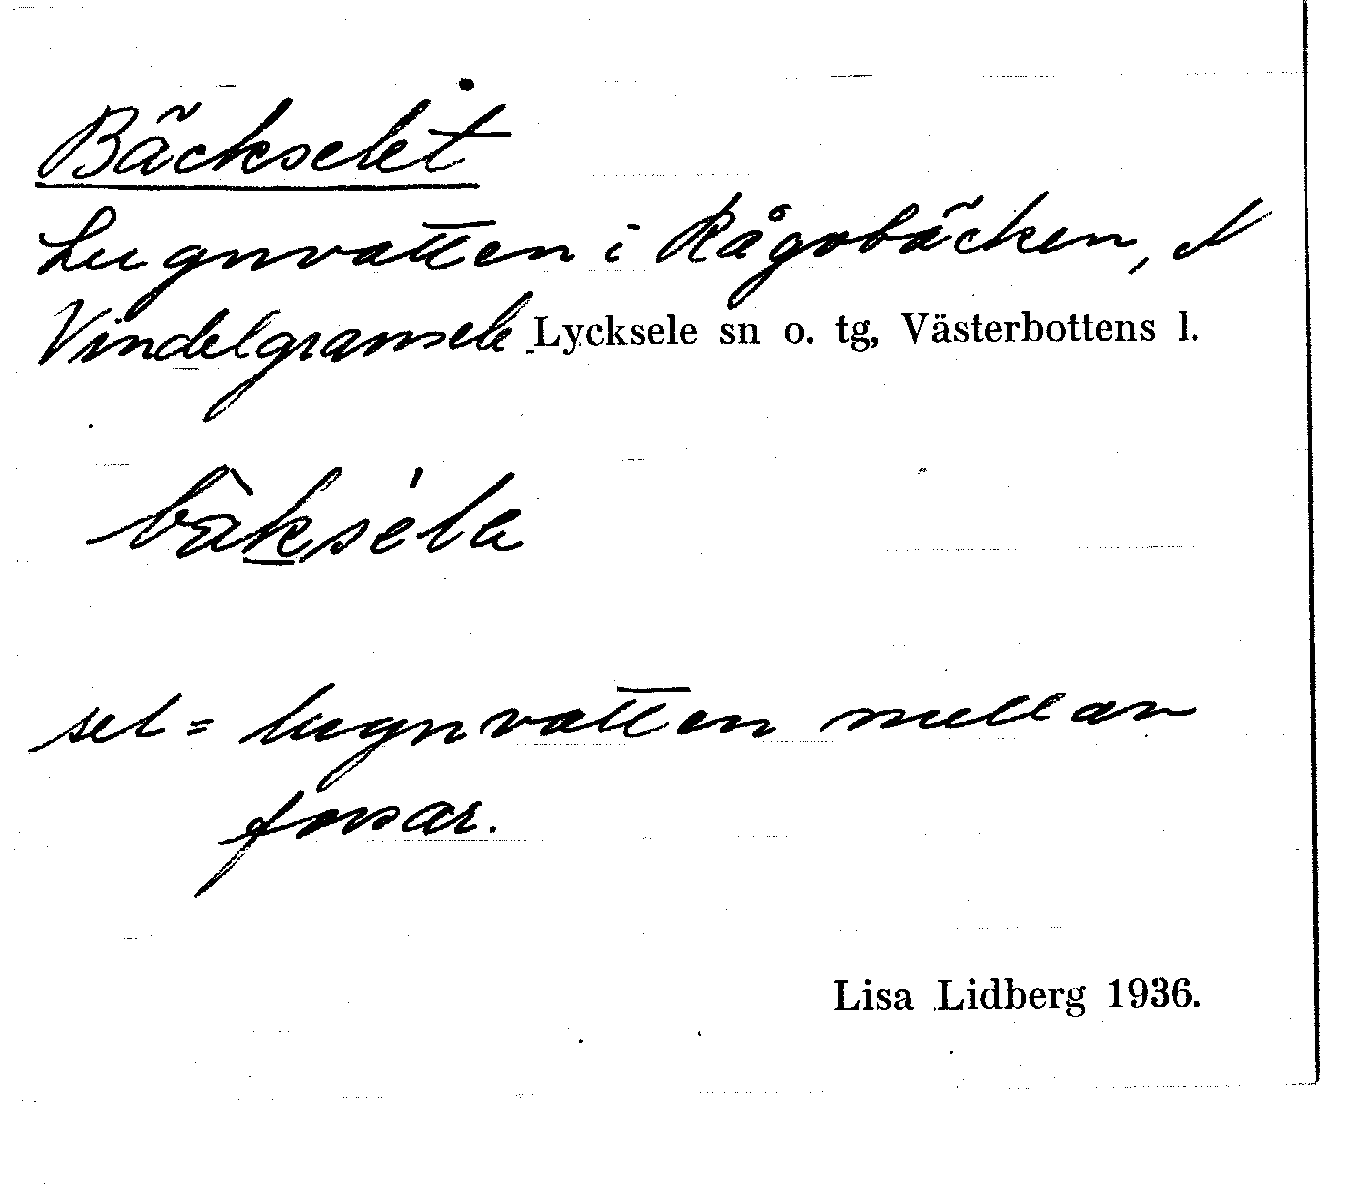 Bäckselet
Lugnvatten i Rågobäcken, N
Vindelgransele Lycksele sn o. tg, Västerbottens l.
sel = lugnvatten mellan
forsar.
Lisa Lidberg 1936.